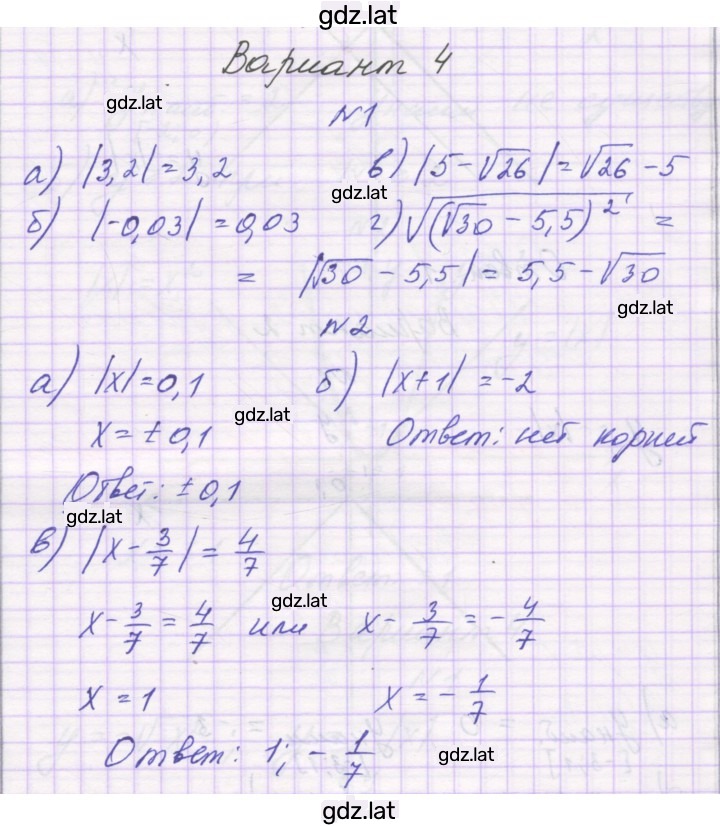 gdz.lat
Вариант 4
gdz.lat
№1
а) |3,2| = 3,2 в) |5 - √26| = √26 - 5
gdz.lat
б) |-0,03| = 0,03 г) √(√30 - 5,5)² =
= |√30 - 5,5| = 5,5 - √30
gdz.lat
№2
а) |x| = 0,1 б) |x+1| = -2
gdz.lat
x = ± 0,1 Ответ: нет корней
Ответ: ± 0,1
gdz.lat
в) |x - 3/7| = 4/7
gdz.lat
x - 3/7 = 4/7 или x - 3/7 = - 4/7
x = 1 x = - 1/7
Ответ: 1; - 1/7
gdz.lat
gdz.lat